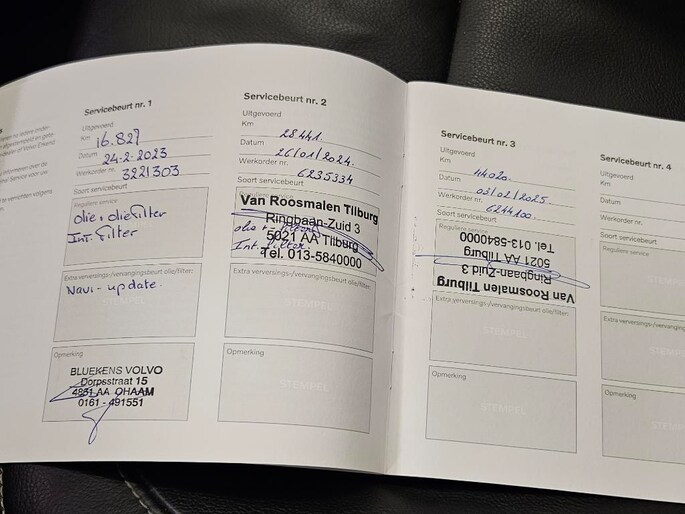 Servicebeurt nr. 1
Uitgevoerd
Km 16.827
Datum 24-2-2023
Werkorder nr. 3221303
Soort servicebeurt
Reguliere service
olie + oliefilter
Int. filter
Extra verversings-/vervangingsbeurt olie/filter:
Navi-update.
Opmerking
BLUEKENS VOLVO
Dorpsstraat 15
4851 AA
0161 - 491551
Servicebeurt nr. 2
Uitgevoerd
Km 28441.
Datum 26/01/2024.
Werkorder nr. 6235334
Soort servicebeurt
Van Roosmalen Tilburg
Ringbaan-Zuid 3
olie + filter
5021 AA Tilburg
Int. filter.
Tel. 013-5840000
Extra verversings-/vervangingsbeurt olie/filter:
STEMPEL
Opmerking
STEMPEL
Servicebeurt nr. 3
Uitgevoerd
Km
Datum 03/02/2025.
Werkorder nr. 6244100.
Soort servicebeurt
Reguliere service
Van Roosmalen Tilburg
Ringbaan-Zuid 3
5021 AA Tilburg
Tel. 013-5840000
Extra verversings-/vervangingsbeurt olie/filter:
STEMPEL
Opmerking
STEMPEL
Servicebeurt nr. 4
Uitgevoerd
Km
Datum
Werkorder nr.
Soort servicebeurt
Reguliere service
Extra verversings-/vervangingsbeurt
Opmerking